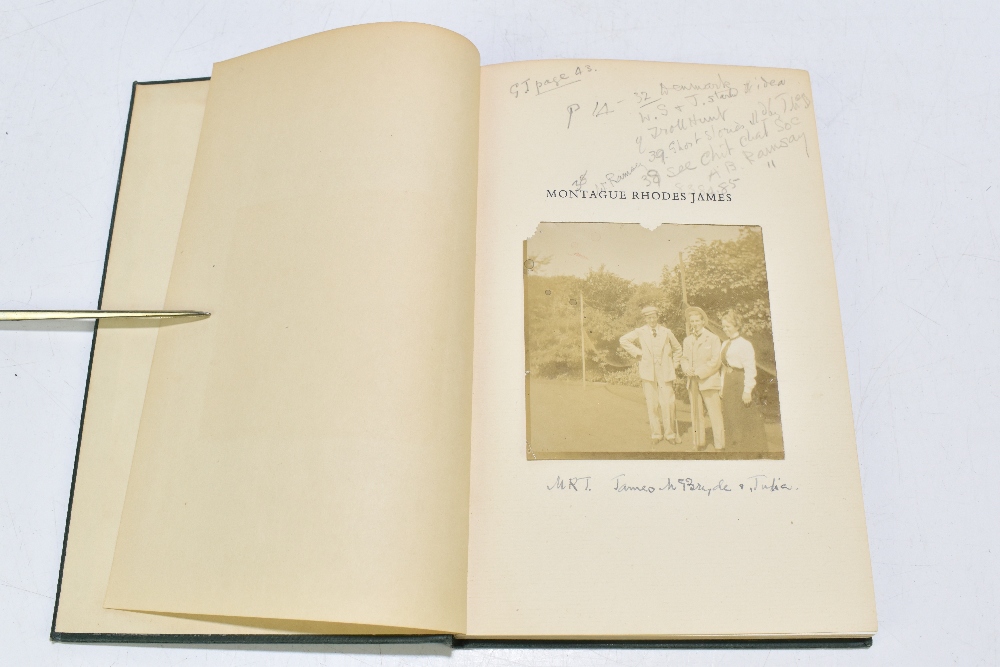 GJ page 43.
P 14 - 32 Denmark
W. S & J. start of idea
of Troll Hunt
39. Ghost Stories
38 see Chit Chat Soc
A B. Ramsay "
MONTAGUE RHODES JAMES
MRJ. James McBryde & Julia.